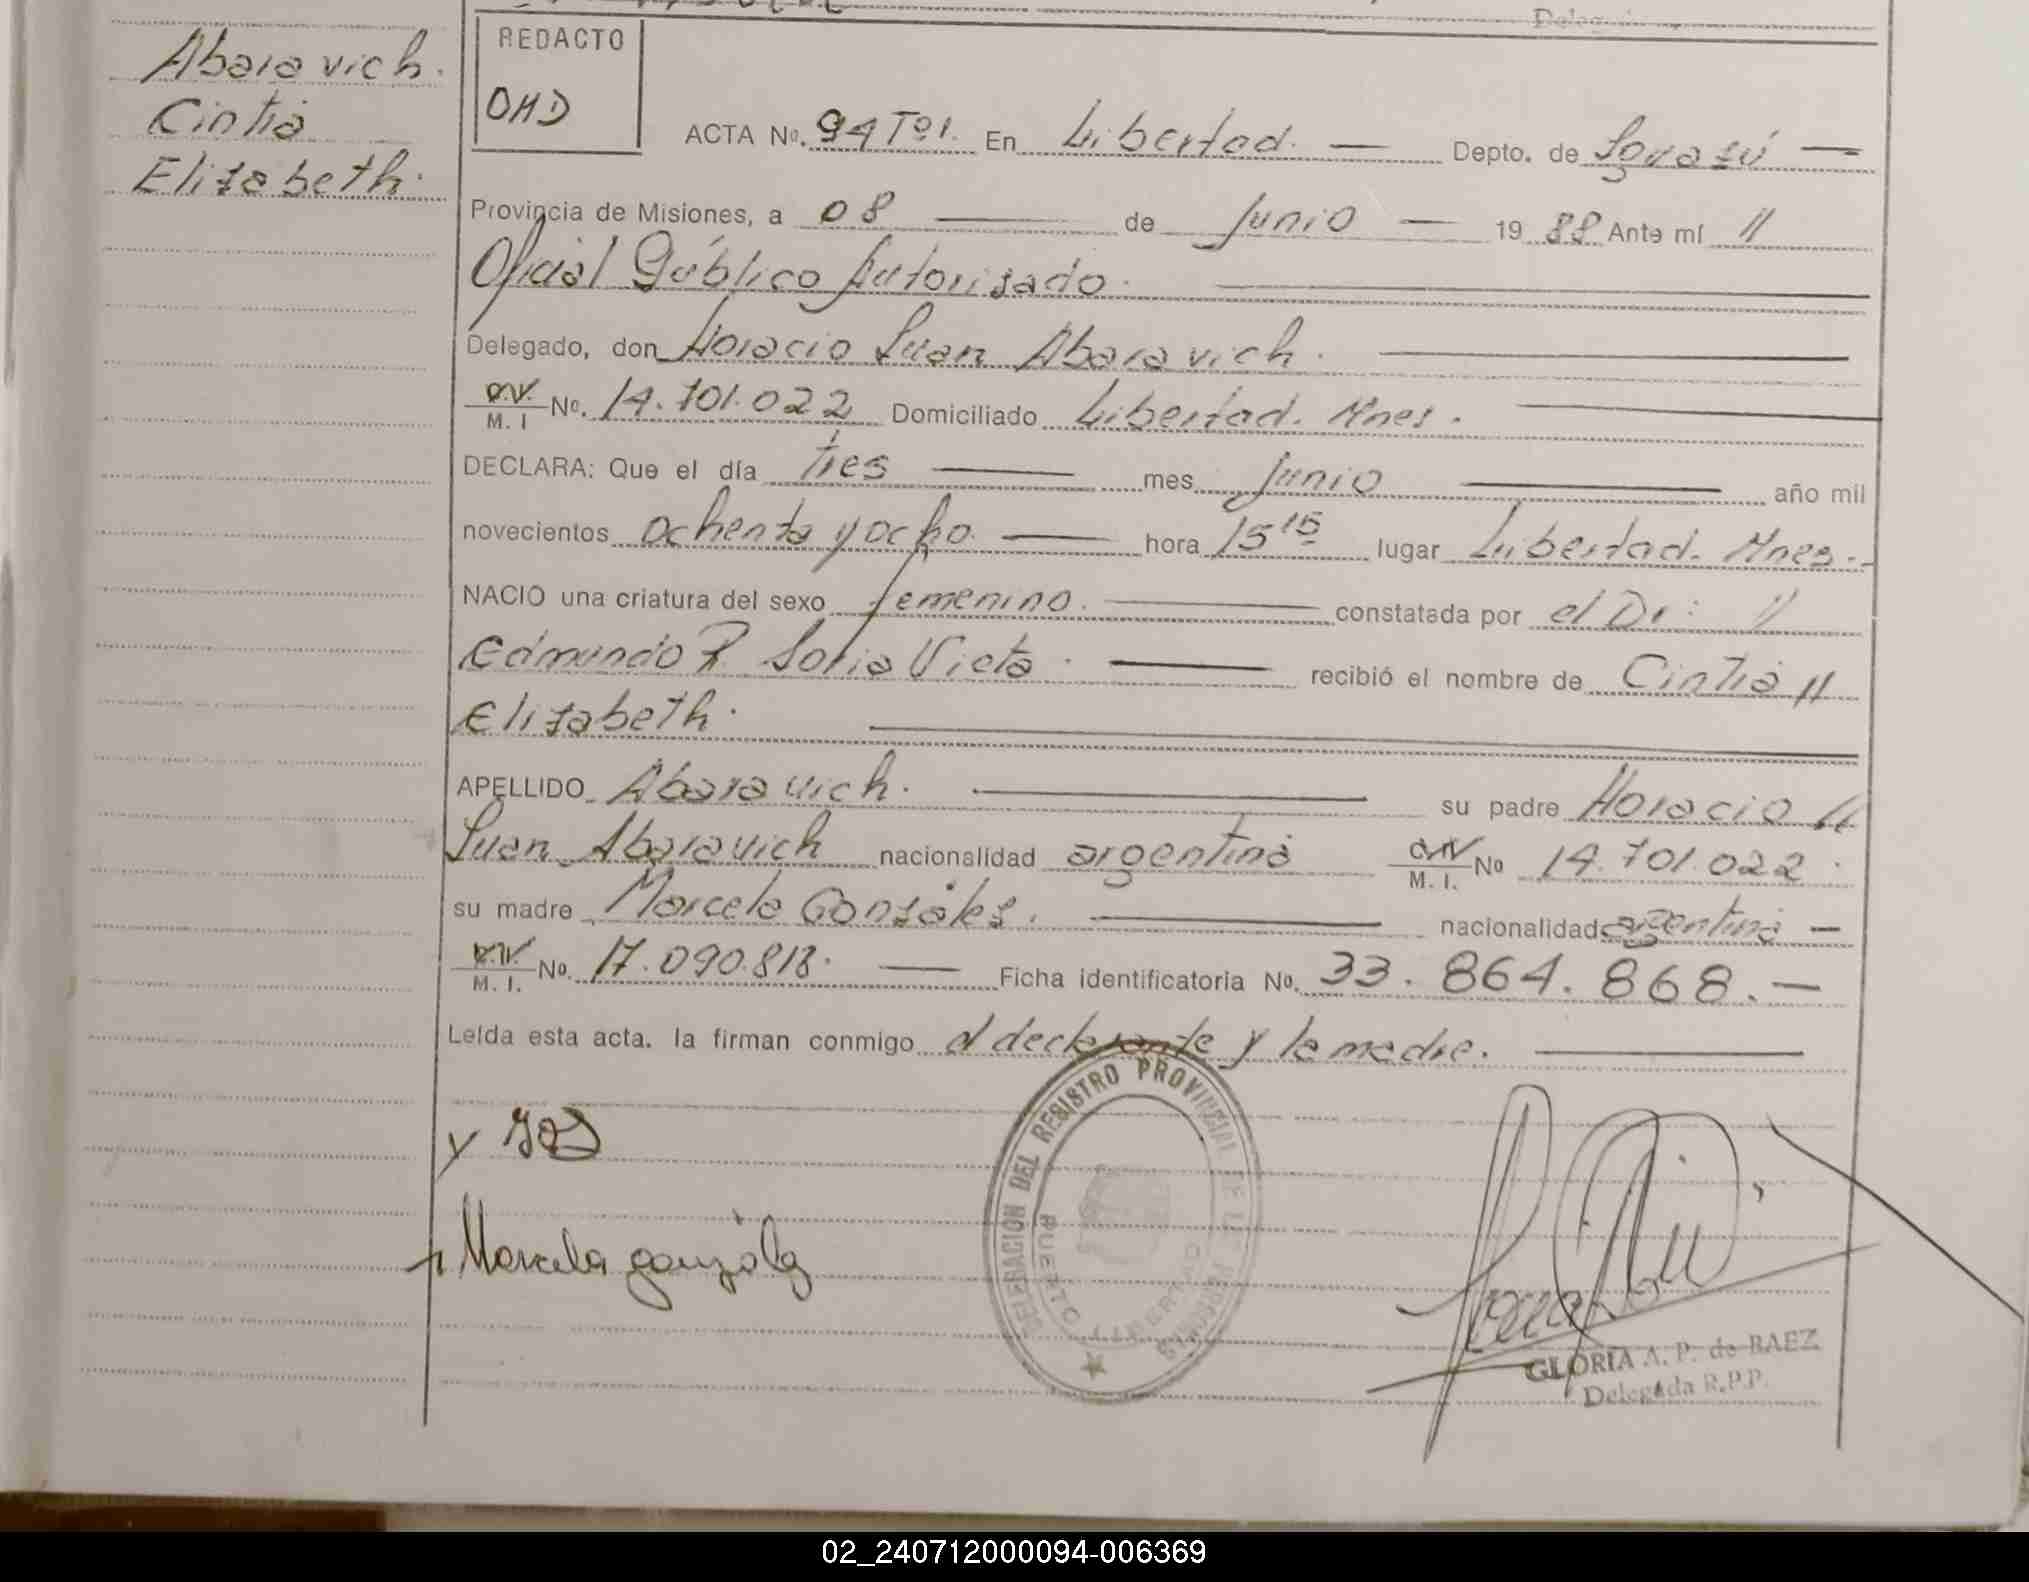 Abaravich.
Cintia
Elizabeth.
REDACTO
OHD
ACTA Nº. 94 Tº1. En Libertad. — Depto. de Iguazú —
Provincia de Misiones, a 08 — de Junio — 19 88 Ante mí //
Oficial Público Autorizado.
Delegado, don Horacio Juan Abaravich.
M. I Nº. 14.701.022 Domiciliado Libertad. Mnes.
DECLARA: Que el día tres — mes Junio — año mil
novecientos ochenta y ocho — hora 15 15 lugar Libertad. Mnes.-
NACIO una criatura del sexo femenino. — constatada por el Dr: //
Edmundo R. Soria Vieta. — recibió el nombre de Cintia //
Elizabeth.
APELLIDO Abaravich. — su padre Horacio //
Juan Abaravich nacionalidad argentina M. I. Nº 14.701.022.
su madre Marcela Gonzáles. — nacionalidad argentina —
M. I. Nº. 17.090.818. — Ficha identificatoria Nº. 33.864.868.—
Leída esta acta. la firman conmigo el declarante y la madre.
Marcela gonzález
DELEGACION DEL REGISTRO PROVINCIAL DE LAS PERSONAS
PUERTO LIBERTAD
MISIONES
GLORIA A. P. de BAEZ
Delegada R.P.P.
02_240712000094-006369